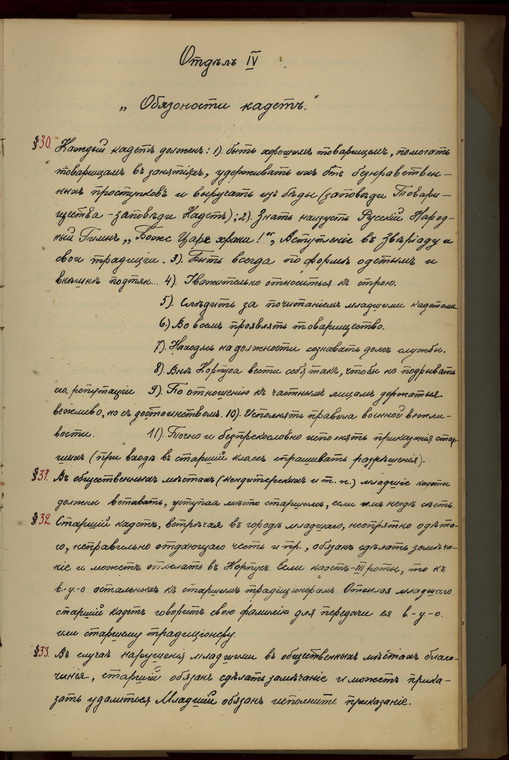 Отдѣлъ IV
„ Обязоности кадетъ."
§30. Каждый кадетъ должен: 1). быть хорошимъ товарищемъ, помогать
товарищам въ занятіяхъ, удерживать ихъ отъ безнравствен-
ныхъ проступковъ и выручать изъ бѣды (заповѣди Товари-
щества - заповѣди Кадетъ); 2). Знать наизусть Русскій Народ-
ный Гимнъ „Боже Царя храни!", Вступленіе въ Звѣріаду и
свои традиціи. 3). Быть всегда по формѣ одѣтымъ и
внѣшне подтян. 4). Уважительно относиться къ строю.
5). Слѣдить за почитаніемъ младшими кадетами
6). Во всемъ проявлять товарищество.
7). Находясь на должности сознавать долгъ службы.
8). Внѣ Корпуса вести себя такъ, чтобы не подрывать
его репутаціи 9). По отношенію къ частнымъ лицамъ держаться
вѣжливо, но съ достоинствомъ. 10). Исполнять правила военной вѣжли-
вости. 11). Точно и безпрекословно исполнять приказанія стар-
шихъ (при входѣ въ старшій классъ спрашивать разрѣшенія).
§31. Въ общественныхъ мѣстахъ (кондитерскихъ и т. п.) младшіе кадеты
должны вставать, уступая мѣсто старшимъ, если имъ негдѣ сѣсть.
§32. Старшій кадетъ, встрѣчая въ городѣ младшаго, неопрятно одѣта-
го, неправильно отдающаго честь и пр., обязанъ сдѣлать замѣча-
ніе и можетъ отослать въ Корпусъ. Если кадетъ III роты, то къ
в.-у-о остальныхъ къ старшимъ традиціонерамъ. Отсылая младшаго
старшій кадетъ говоритъ свою фамилію для передачи ея в-у-о.
или старшему традиціонеру.
§33. Въ случаѣ нарушенія младшими въ общественныхъ мѣстахъ благо-
чинія, старшій обязанъ сдѣлать замѣчаніе и можетъ прика-
зать удалиться. Младшій обязанъ исполнить приказаніе.